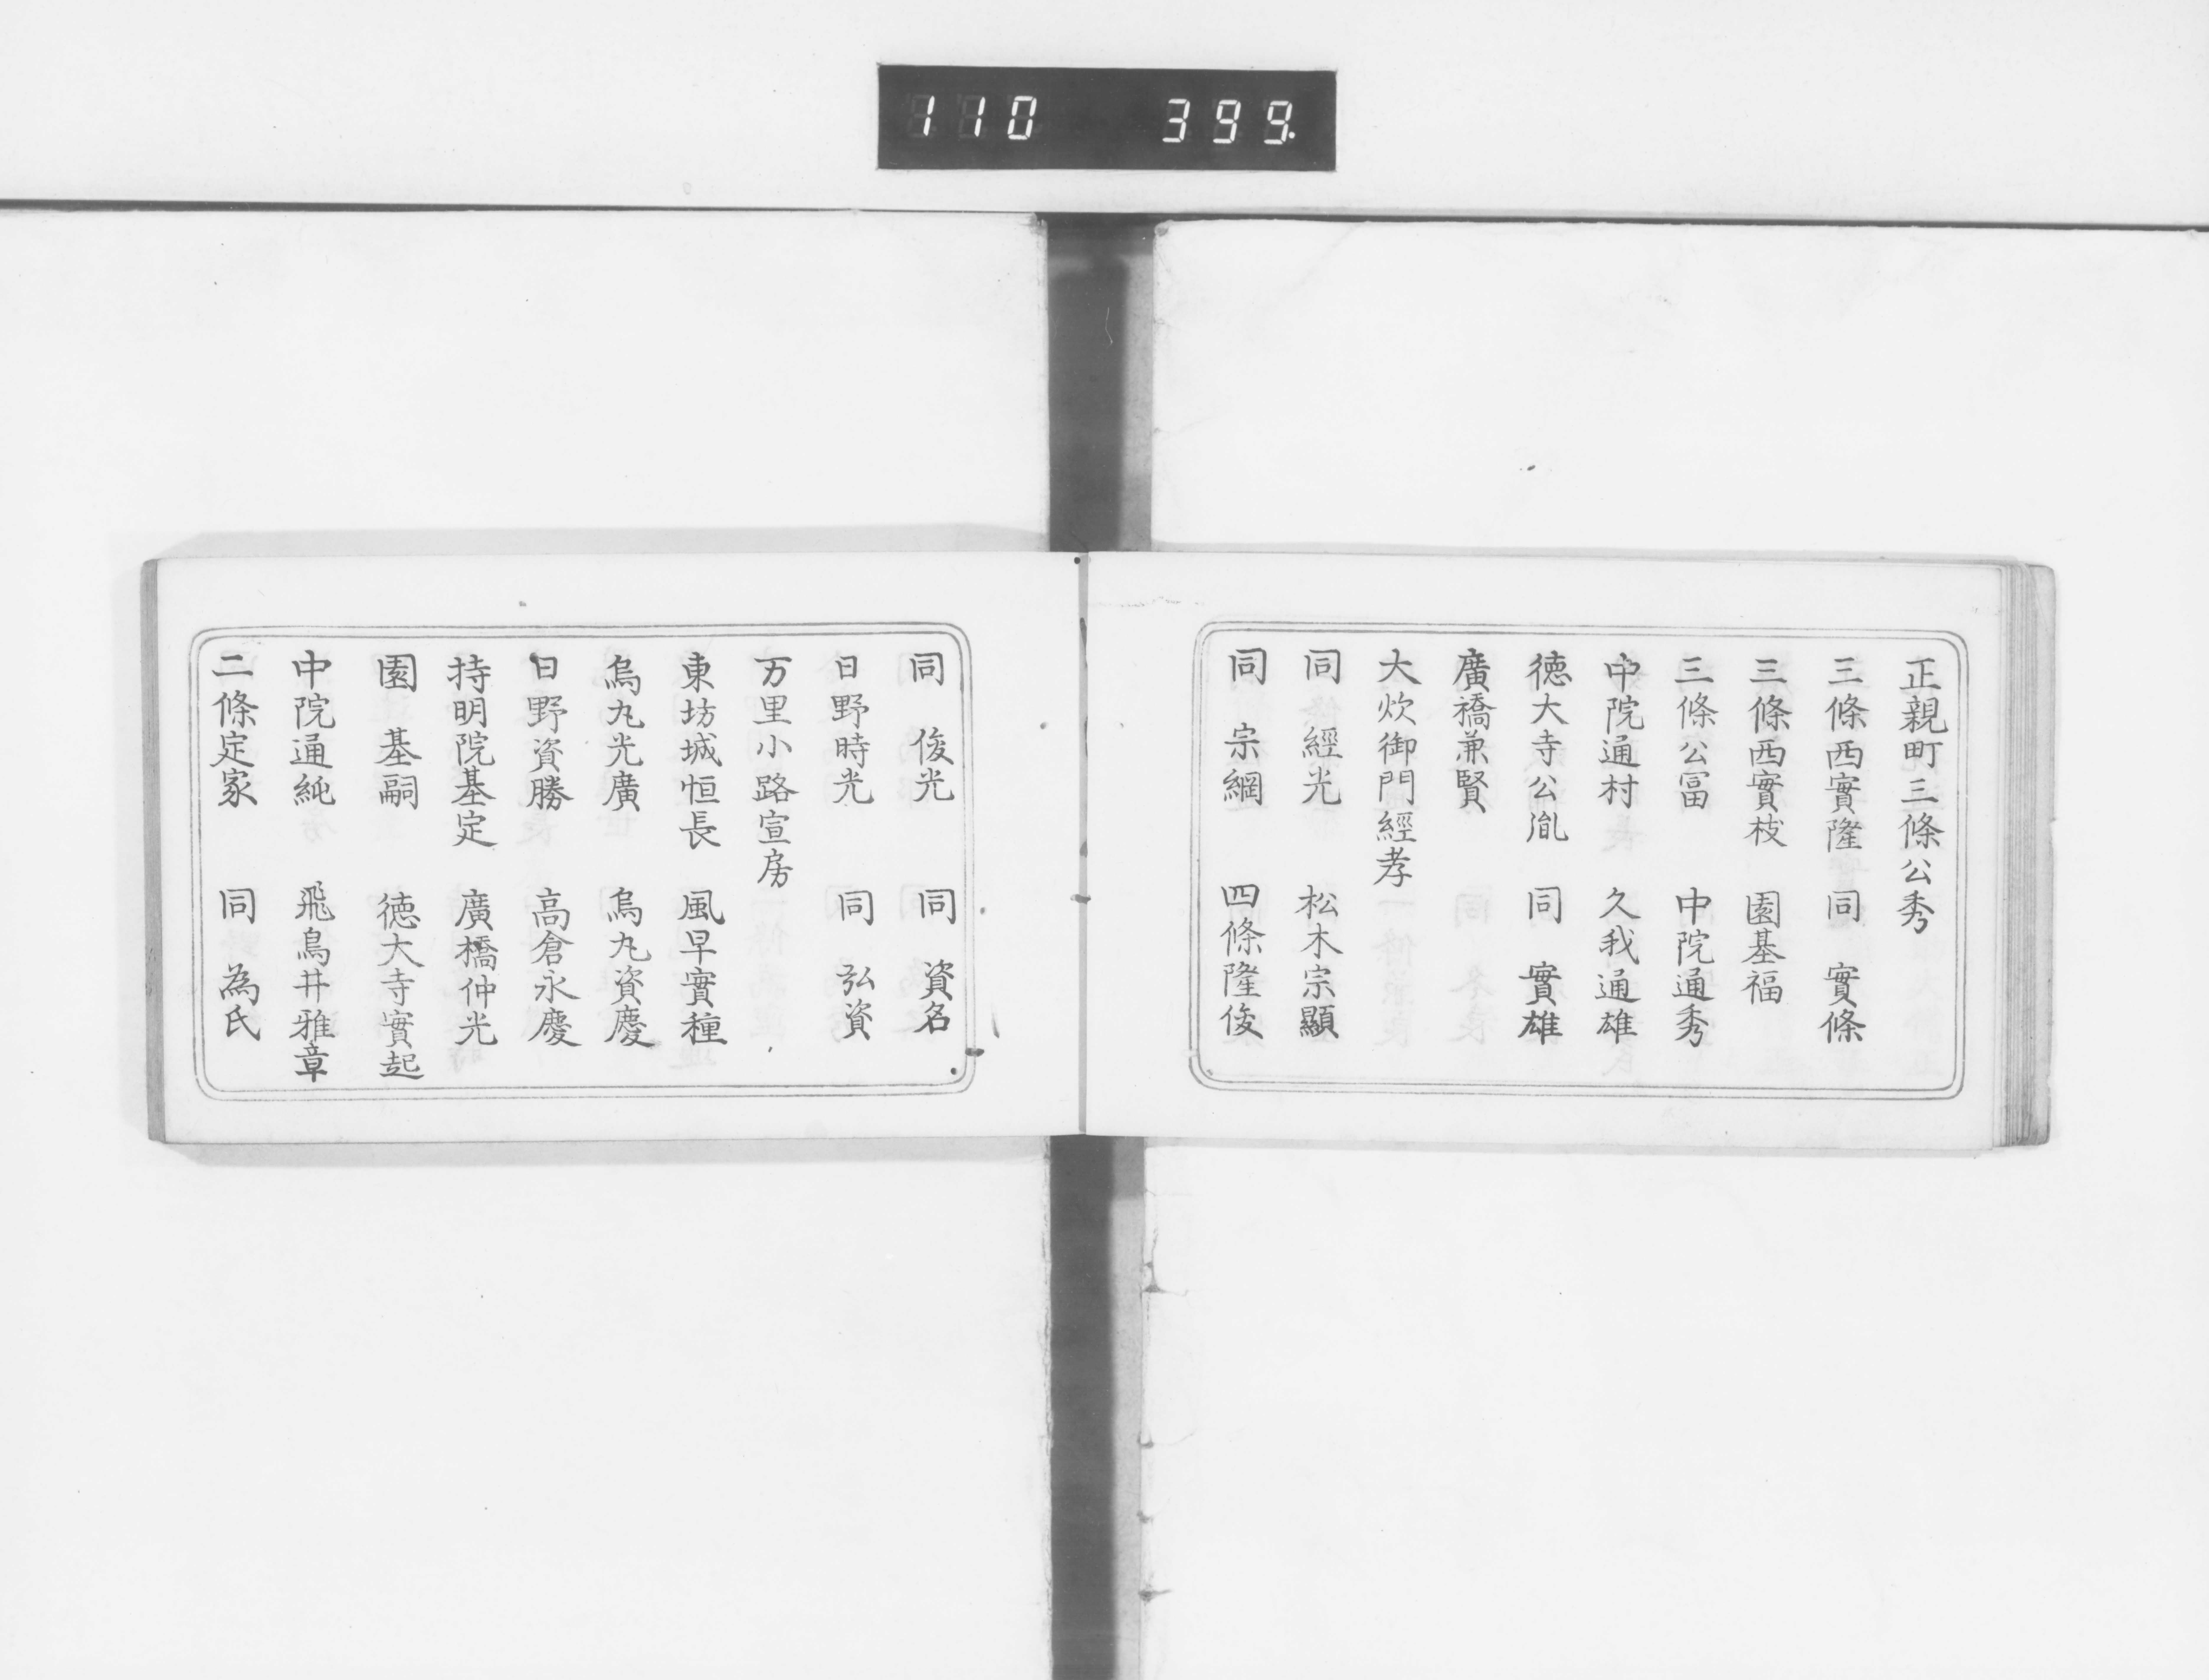 110 399.
正親町三條公秀
三條西實隆 同 實條
三條西實枝 園基福
三條公冨 中院通秀
中院通村 久我通雄
徳大寺公胤 同 實雄
廣橋兼賢
大炊御門經孝
同 經光 松木宗顯
同 宗綱 四條隆俊
同 俊光 同 資名
日野時光 同 弘資
万里小路宣房
東坊城恒長 風早實種
烏丸光廣 烏丸資慶
日野資勝 高倉永慶
持明院基定 廣橋仲光
園 基嗣 徳大寺實起
中院通純 飛鳥井雅章
二條定家 同 為氏